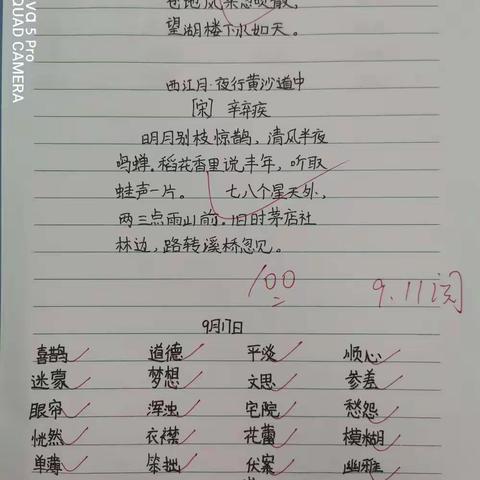 卷地风来忽吹散,
望湖楼下水如天。
西江月·夜行黄沙道中
[宋] 辛弃疾
明月别枝惊鹊,清风半夜
鸣蝉。稻花香里说丰年,听取
蛙声一片。 七八个星天外,
两三点雨山前。旧时茅店社
林边,路转溪桥忽见。
100
9.11阅
9月17日
喜鹊 道德 平淡 顺心
迷蒙 梦想 文思 参差
眼帘 浑浊 宅院 愁怨
恍然 衣襟 花蕾 模糊
单薄 笨拙 伏案 幽雅
va 5 Pro
QUAD CAMERA